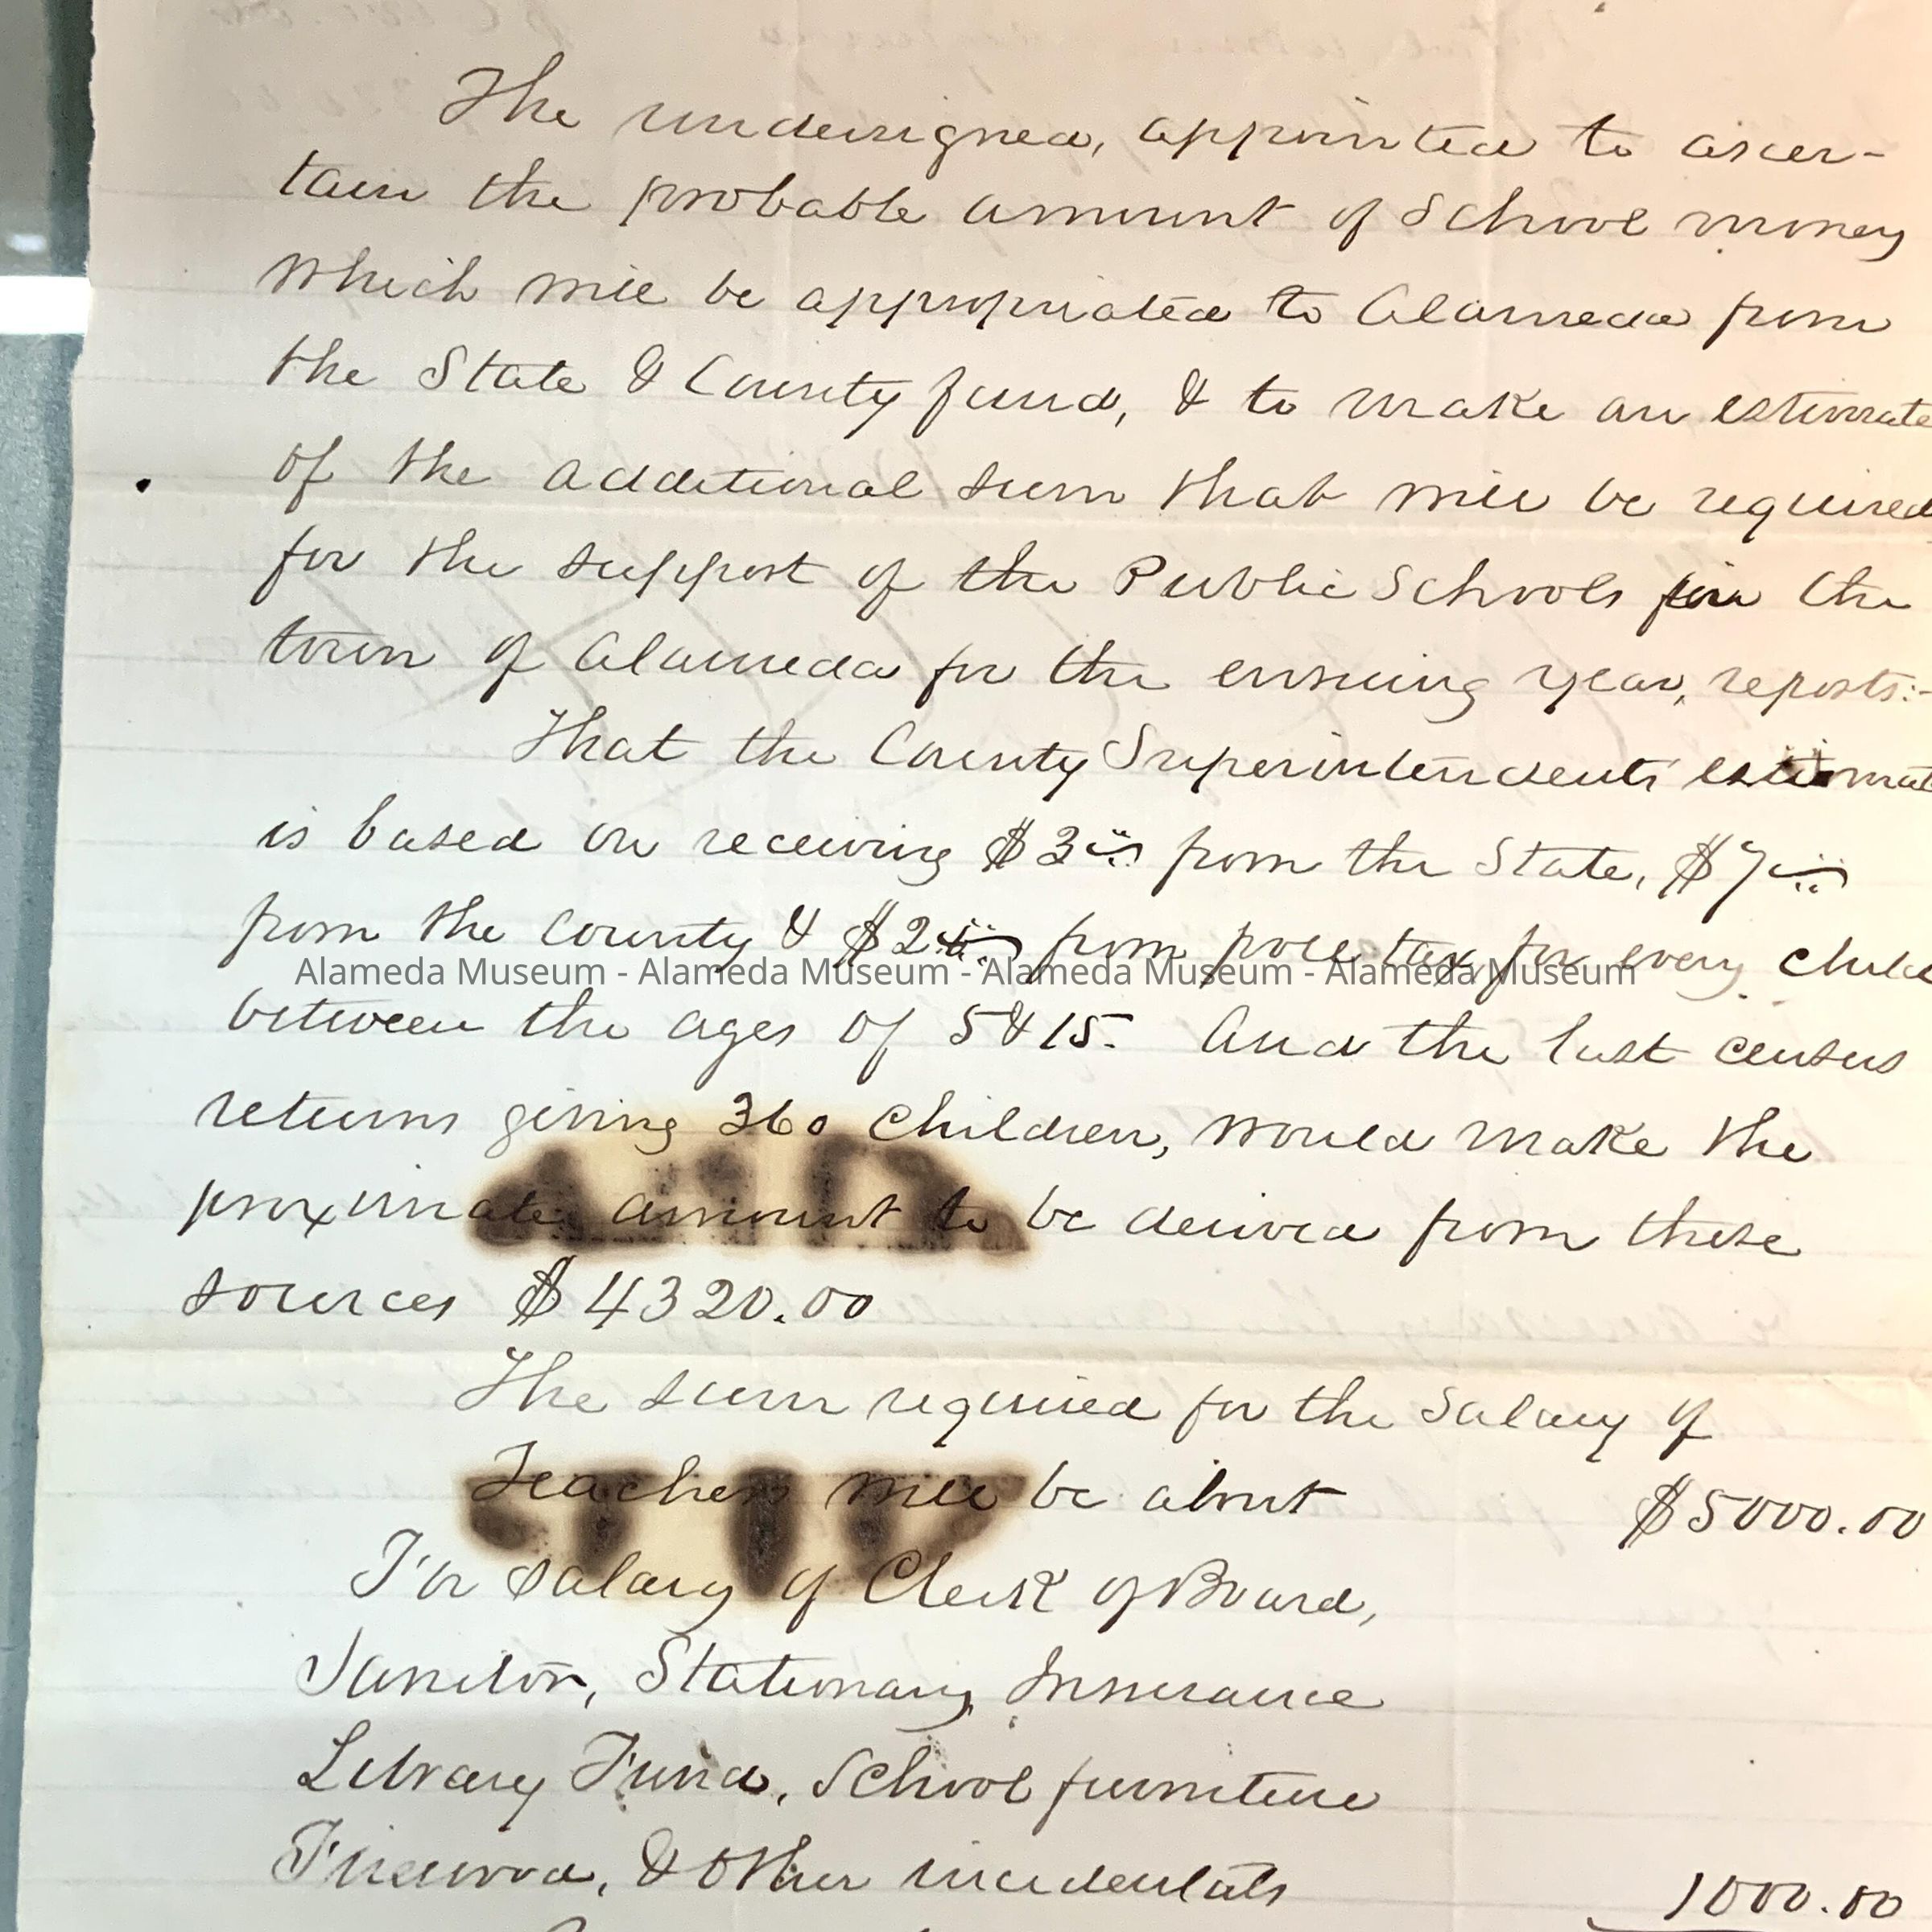 The undersigned, appointed to ascer-
tain the probable amount of School money
which will be appropriated to Alameda from
the State & County fund, & to make an estimate
of the additional sum that will be required
for the support of the Public Schools in the
town of Alameda for the ensuing year, reports:-
That the County Superintendents estimat
is based on receiving $3 from the State, $7
from the County & $2 from poll tax for every child
between the ages of 5 & 15. And the last census
returns giving 360 Children, would make the
proximate amount to be derived from these
sources $4320.00
The sum required for the Salary of
Teachers will be about $5000.00
For Salary of Clerk of Board,
Janitor, Stationary, Insurance
Library Fund, School furniture
Firewood, & other incidentals 1000.00
Alameda Museum - Alameda Museum - Alameda Museum - Alameda Museum